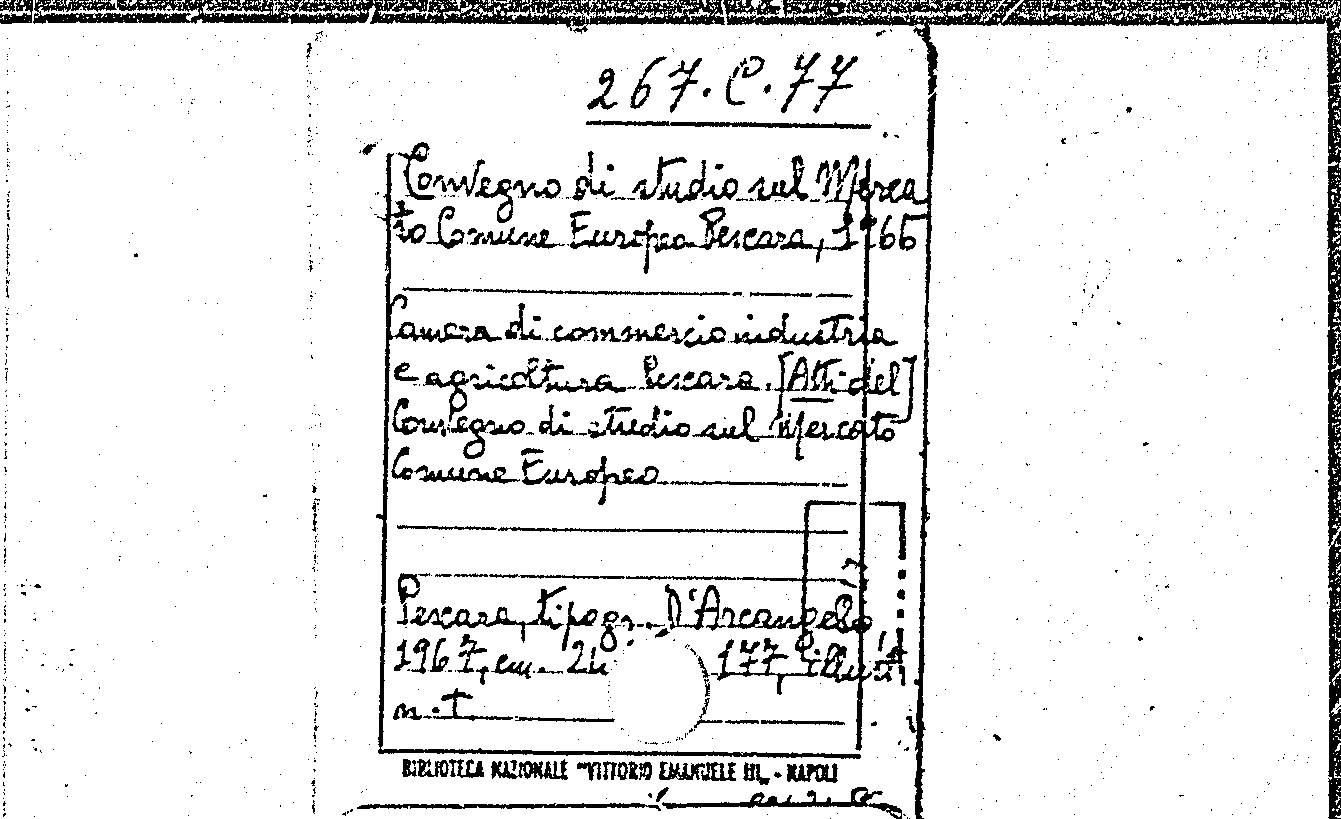 267.C.77
Convegno di studio sul Merca
to Comune Europeo Pescara, 1966
Camera di commercio industria
e agricoltura Pescara. [Atti del]
Convegno di studio sul Mercato
Comune Europeo
Pescara, tipogr. D'Arcangelo,
1967, cm. 177, illustr.
n.T.
BIBLIOTECA NAZIONALE "VITTORIO EMANUELE III„ - NAPOLI